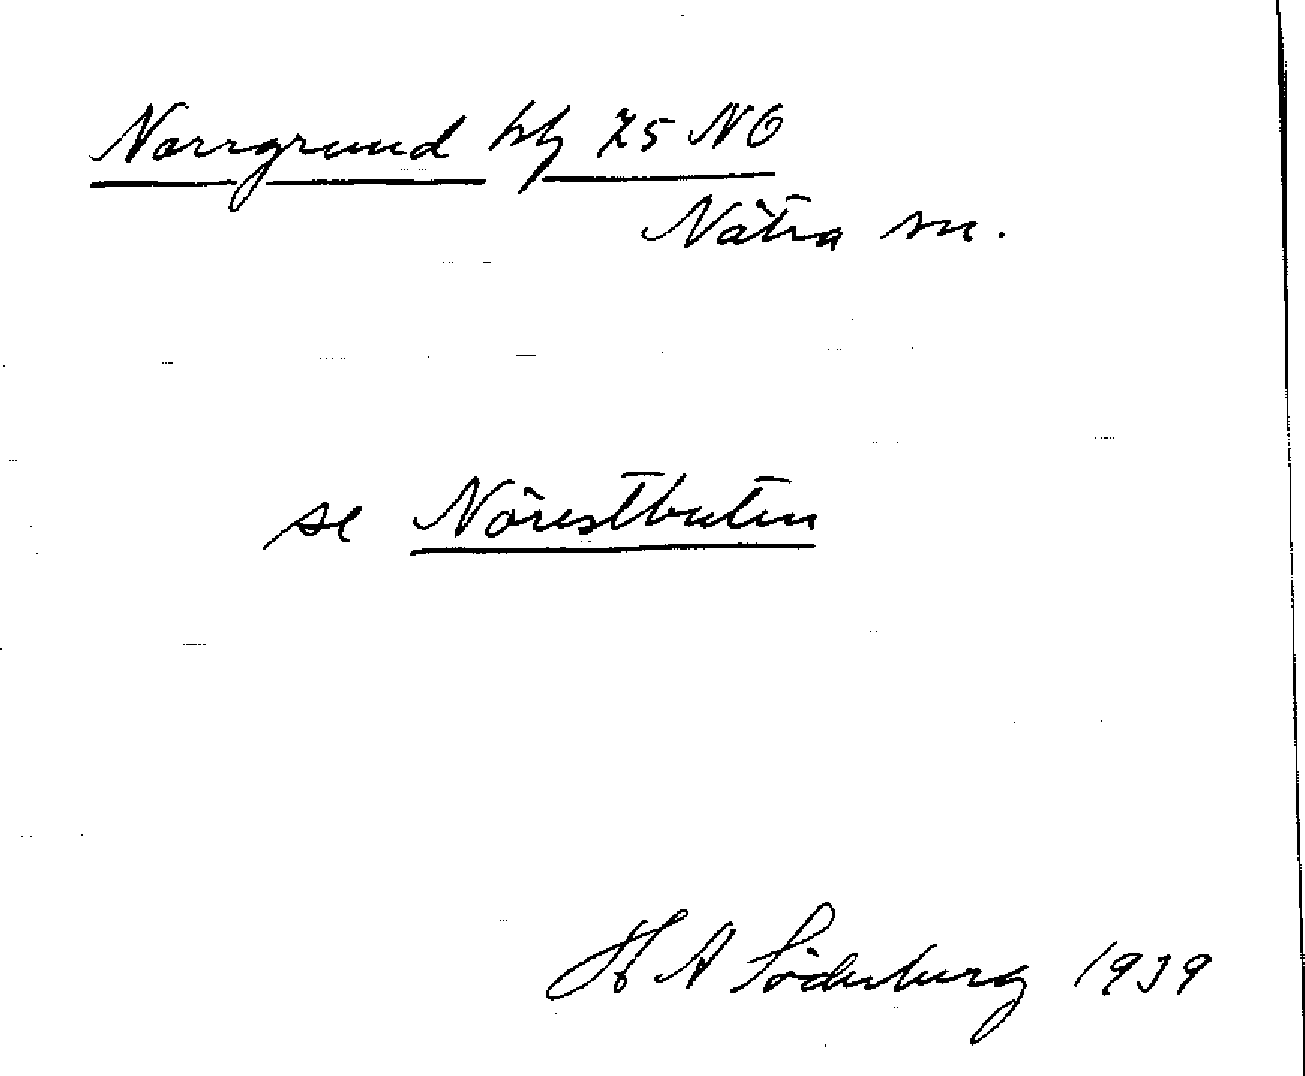 Norrgrund kbl 75 NO
Nätra sn.
se Nörestbuten
H A Söderberg 1939